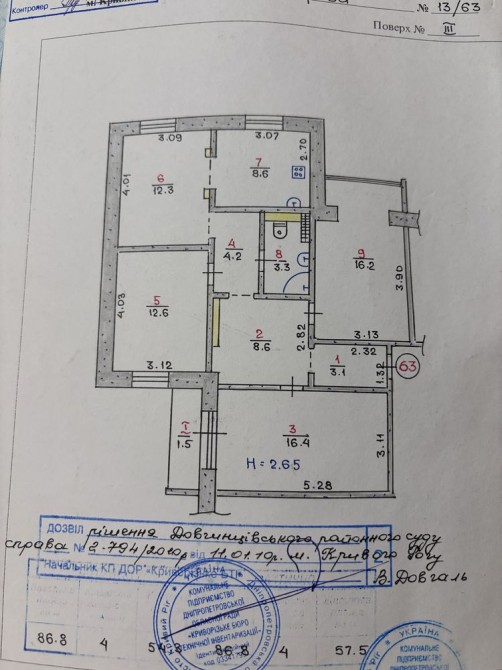 Контролер
№ 13/63
Поверх № III
3.09
3.07
2.70
7
8.6
6
12.3
4.01
4
4.2
8
3.3
9
16.2
3.90
5
12.6
4.03
2
8.6
2.82
3.13
2.32
1
3.1
1.32
63
3.12
I
1.5
3
16.4
3.11
H = 2.65
5.28
ДОЗВІЛ рішення Довгинцівського районного суду
справа № 2-794/2010р від 11.01.10р. м. Кривого Рогу
Начальник КП ДОР "Криворізьке БТІ"
В. Довгаль
УКРАЇНА
КОМУНАЛЬНЕ
ПІДПРИЄМСТВО
ДНІПРОПЕТРОВСЬКОЇ
ОБЛАСНОЇ РАДИ
«КРИВОРІЗЬКЕ БЮРО
ТЕХНІЧНОЇ ІНВЕНТАРИЗАЦІЇ»
86.8 4 54.3 86.8 4 57.5
УКРАЇНА
КОМУНАЛЬНЕ
ПІДПРИЄМСТВО